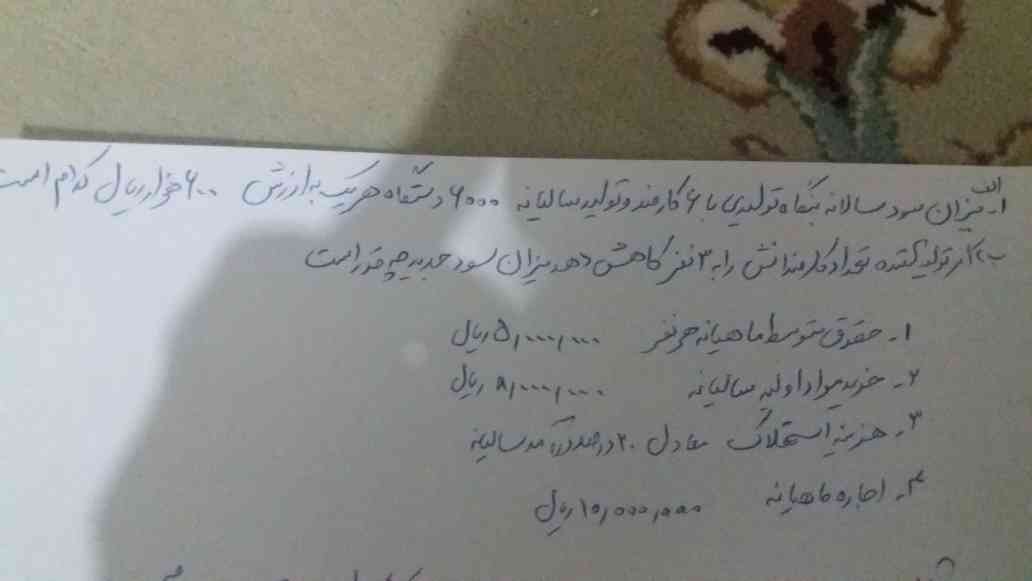 الف
۱- میزان سود سالانه بنگاه تولیدی با ۶ کارمند و تولید سالیانه ۶۰۰۰ دستگاه هریک به ارزش ۶۰۰ هزار ریال کدام است
ب) اگر تولید کننده تعداد کارمندانش را به ۳ نفر کاهش دهد میزان سود جدید چه قدر است
۱- حقوق متوسط ماهیانه هر نفر ۵,۰۰۰,۰۰۰ ریال
۲- خرید مواد اولیه سالیانه ۸,۰۰۰,۰۰۰ ریال
۳- هزینه استهلاک معادل ۲۰ درصد درآمد سالیانه
۴- اجاره ماهیانه ۱۰,۰۰۰,۰۰۰ ریال